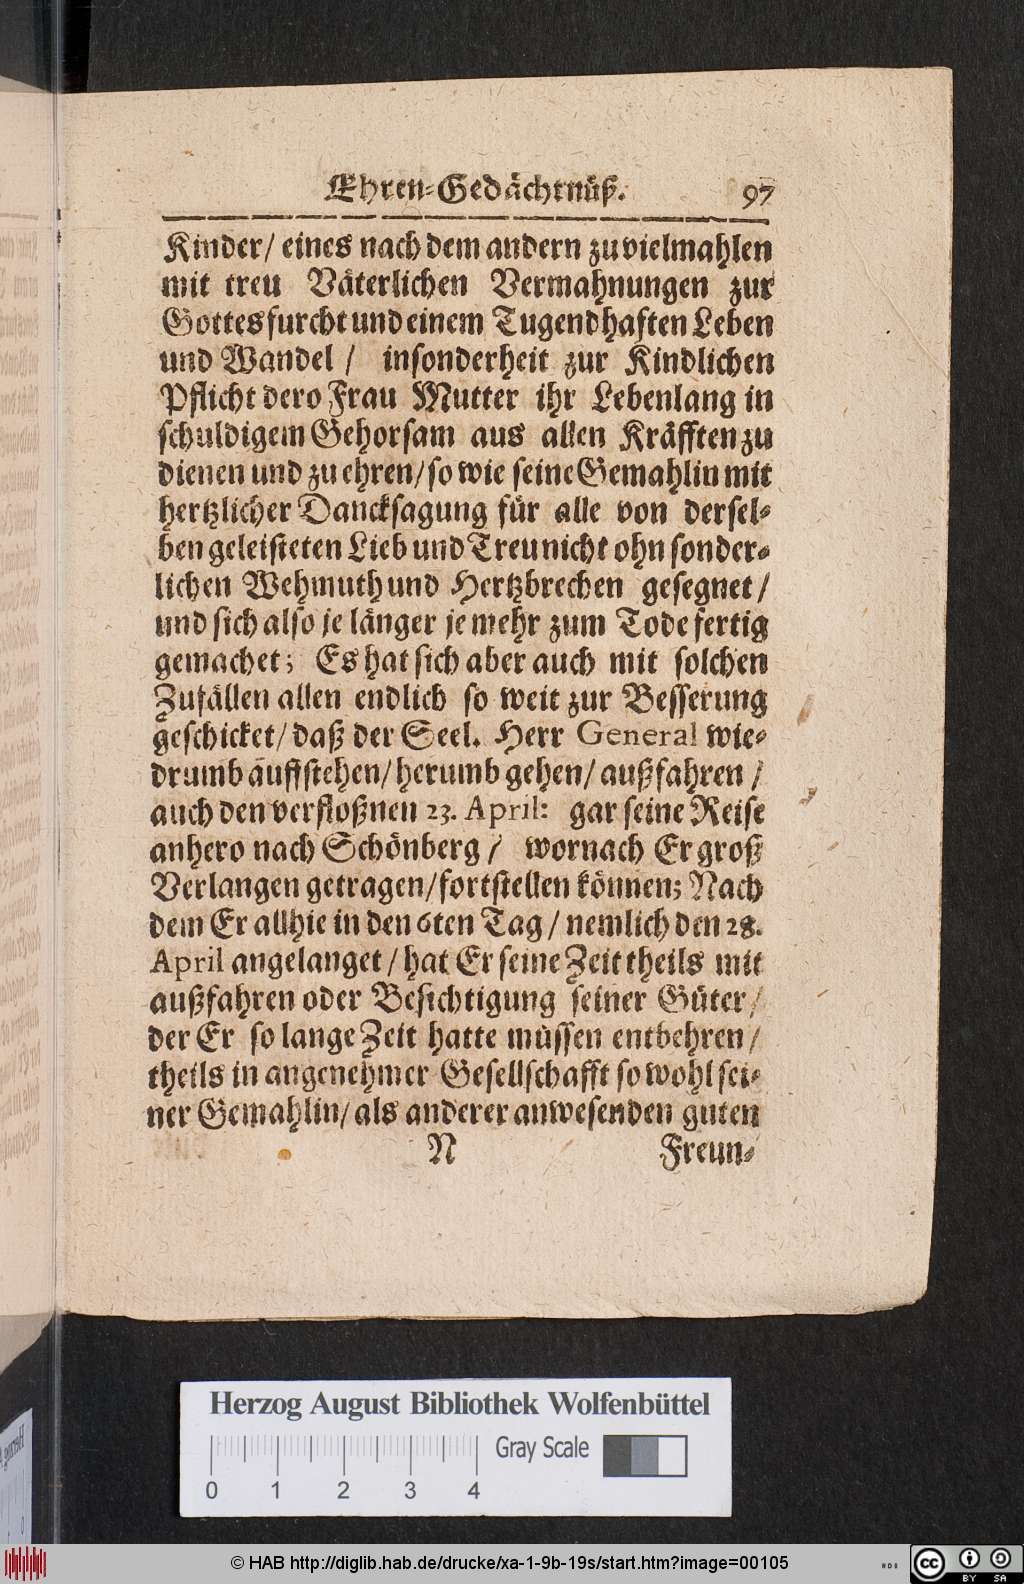 Ehren-Gedächtnüß. 97
Kinder/ eines nach dem andern zu vielmahlen
mit treu Väterlichen Vermahnungen zur
Gottesfurcht und einem Tugendhaften Leben
und Wandel / insonderheit zur Kindlichen
Pflicht dero Frau Mutter ihr Lebenlang in
schuldigem Gehorsam aus allen Kräfften zu
dienen und zu ehren/ so wie seine Gemahlin mit
hertzlicher Dancksagung für alle von dersel-
ben geleisteten Lieb und Treu nicht ohn sonder-
lichen Wehmuth und Hertzbrechen gesegnet/
und sich also je länger je mehr zum Tode fertig
gemachet; Es hat sich aber auch mit solchen
Zufällen allen endlich so weit zur Besserung
geschicket/ daß der Seel. Herr General wie-
drumb auffstehen/ herumb gehen/ außfahren /
auch den verfloßnen 23. April: gar seine Reise
anhero nach Schönberg / wornach Er groß
Verlangen getragen/ fortstellen können; Nach
dem Er allhie in den 6ten Tag / nemlich den 28.
April angelanget / hat Er seine Zeit theils mit
außfahren oder Besichtigung seiner Güter/
der Er so lange Zeit hatte müssen entbehren/
theils in angenehmer Gesellschafft so wohl sei-
ner Gemahlin/ als anderer anwesenden guten
N Freun-
Herzog August Bibliothek Wolfenbüttel
Gray Scale
0 1 2 3 4
© HAB http://diglib.hab.de/drucke/xa-1-9b-19s/start.htm?image=00105
CC BY SA